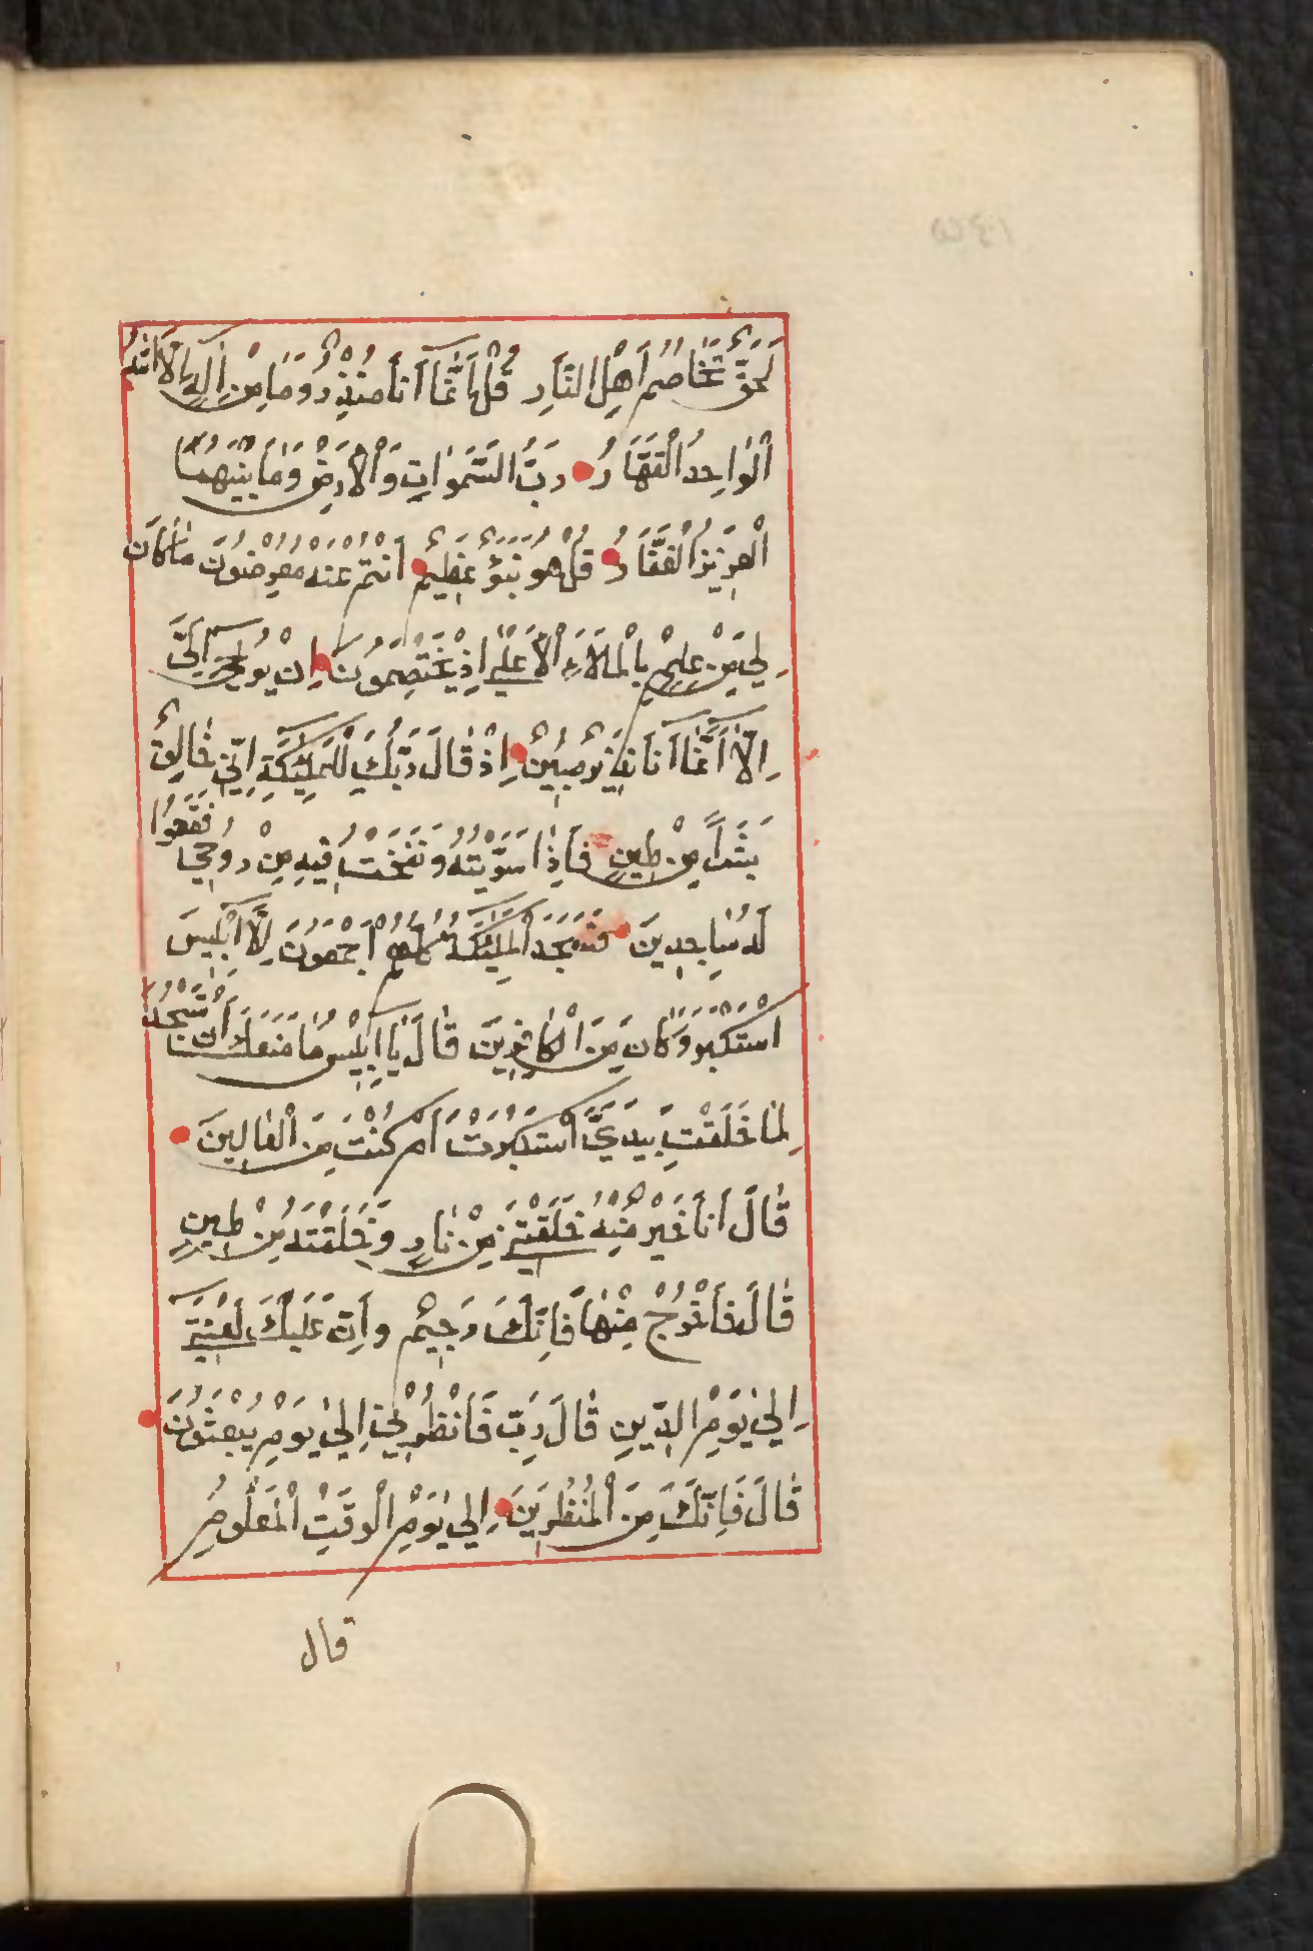 لَحَقٌّ تَخَاصُمُ اَهْلِ النَّارِ قُلْ اِنَّمَا اَنَا مُنْذِرٌ وَمَا مِنْ اِلٰهٍ اِلَّا اللّٰهُ
الْوَاحِدُ الْقَهَّارُ رَبُّ السَّمٰوَاتِ وَالْاَرْضِ وَمَا بَيْنَهُمَا
الْعَزِيزُ الْغَفَّارُ قُلْ هُوَ نَبَؤٌ عَظِيمٌ اَنْتُمْ عَنْهُ مُعْرِضُونَ مَا كَانَ
لِيَ مِنْ عِلْمٍ بِالْمَلَاِ الْاَعْلٰى اِذْ يَخْتَصِمُونَ اِنْ يُوحٰى اِلَيَّ
اِلَّا اَنَّمَا اَنَا نَذِيرٌ مُبِينٌ اِذْ قَالَ رَبُّكَ لِلْمَلٰٓئِكَةِ اِنِّي خَالِقٌ
بَشَراً مِنْ طِينٍ فَاِذَا سَوَّيْتُهُ وَنَفَخْتُ فِيهِ مِنْ رُوحِي فَقَعُوا
لَهُ سَاجِدِينَ فَسَجَدَ الْمَلٰٓئِكَةُ كُلُّهُمْ اَجْمَعُونَ اِلَّا اِبْلِيسَ
اسْتَكْبَرَ وَكَانَ مِنَ الْكَافِرِينَ قَالَ يَا اِبْلِيسُ مَا مَنَعَكَ اَنْ تَسْجُدَ
لِمَا خَلَقْتُ بِيَدَيَّ اَسْتَكْبَرْتَ اَمْ كُنْتَ مِنَ الْعَالِينَ
قَالَ اَنَا خَيْرٌ مِنْهُ خَلَقْتَنِي مِنْ نَارٍ وَخَلَقْتَهُ مِنْ طِينٍ
قَالَ فَاخْرُجْ مِنْهَا فَاِنَّكَ رَجِيمٌ وَاِنَّ عَلَيْكَ لَعْنَتِي
اِلٰى يَوْمِ الدِّينِ قَالَ رَبِّ فَاَنْظِرْنِي اِلٰى يَوْمِ يُبْعَثُونَ
قَالَ فَاِنَّكَ مِنَ الْمُنْظَرِينَ اِلٰى يَوْمِ الْوَقْتِ الْمَعْلُومِ
قال